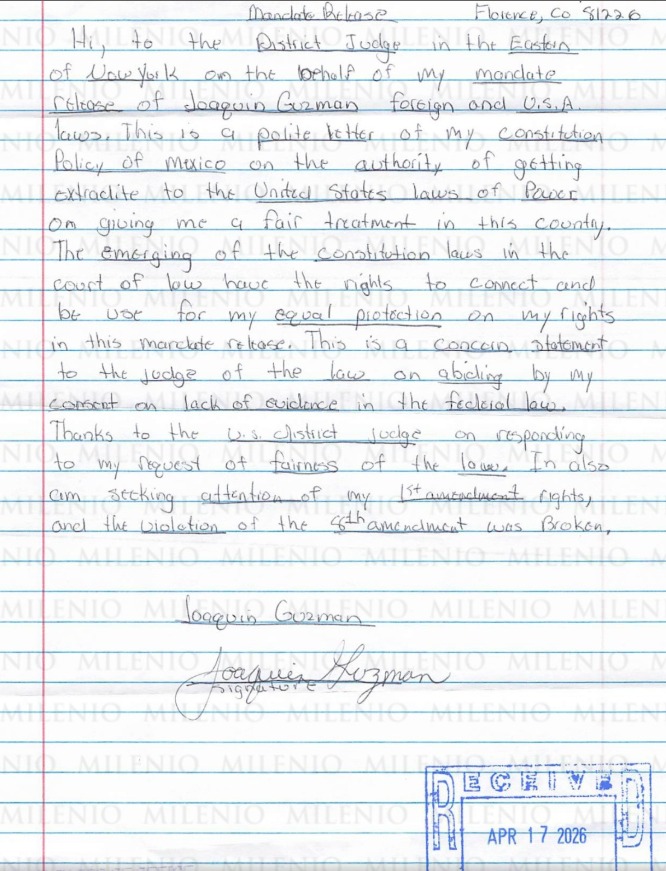 Mandate Release Florence, Co 81226
Hi, to the District Judge in the Eastern
of New York on the behalf of my mandate
release of Joaquin Guzman foreign and U.S.A.
laws. This is a polite letter of my constitution
Policy of Mexico on the authority of getting
extradite to the United States laws of Power
on giving me a fair treatment in this country.
The emerging of the constitution laws in the
court of law have the rights to connect and
be use for my equal protection on my rights
in this mandate release. This is a concern statement
to the judge of the law on abiding by my
consent on lack of evidence in the federal law.
Thanks to the U.S. district judge on responding
to my request of fairness of the law. In also
am seeking attention of my 1st amendment rights,
and the violation of the 8th amendment was Broken.
Joaquin Guzman
Joaquin Guzman
signature
RECEIVED
APR 17 2026
MILENIO